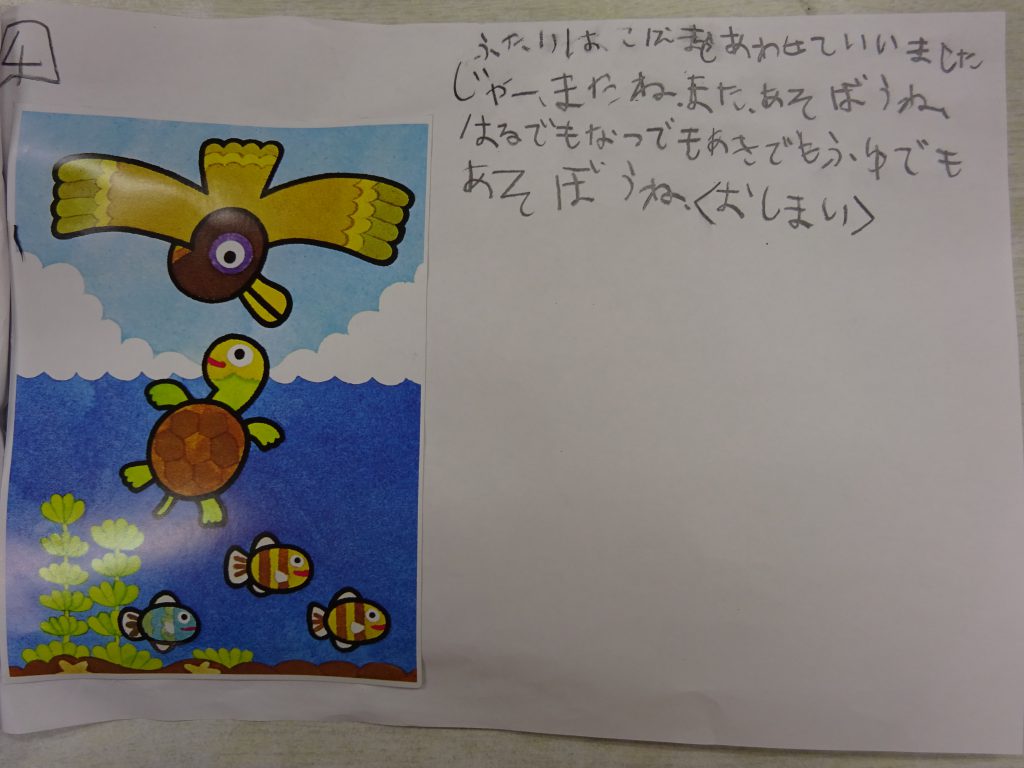 4
ふたりは、こえをあわせていいました
じゃー、またね、また、あそぼうね、
はるでもなつでもあきでもふゆでも
あそぼうね、〈おしまい〉